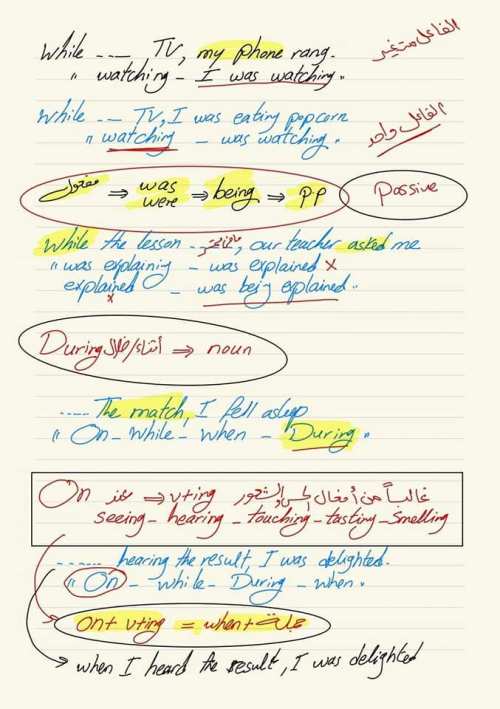 While ---- TV, my phone rang. الفاعل متغير
" watching - I was watching "
While --- TV, I was eating popcorn
" watching - was watching " الفاعل واحد
مفعول ⇒ was were ⇒ being ⇒ P.P Passive
While the lesson ---, our teacher asked me
" was explaining - was explained x
explained x - was being explained "
During أثناء/خلال ⇒ noun
----- The match, I fell asleep
" On - While - when - During "
On عند ⇒ v+ing غالباً من أفعال الحس والشعور
seeing - hearing - touching - tasting - smelling
------ hearing the result, I was delighted.
" On - while - During - when "
on + v+ing = when + جملة
→ when I heard the result, I was delighted